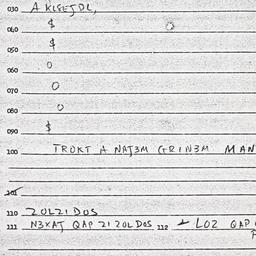 030 A KLSEJDL,
040 $ O
$
050 O
060
070 O
080 O
090 $
100 TROKT A NATEM GRINEM MAN
101
110 ZOLZIDOS
111 NEXAT QAP ZI ZOLDOS 112 + LOZ QAP